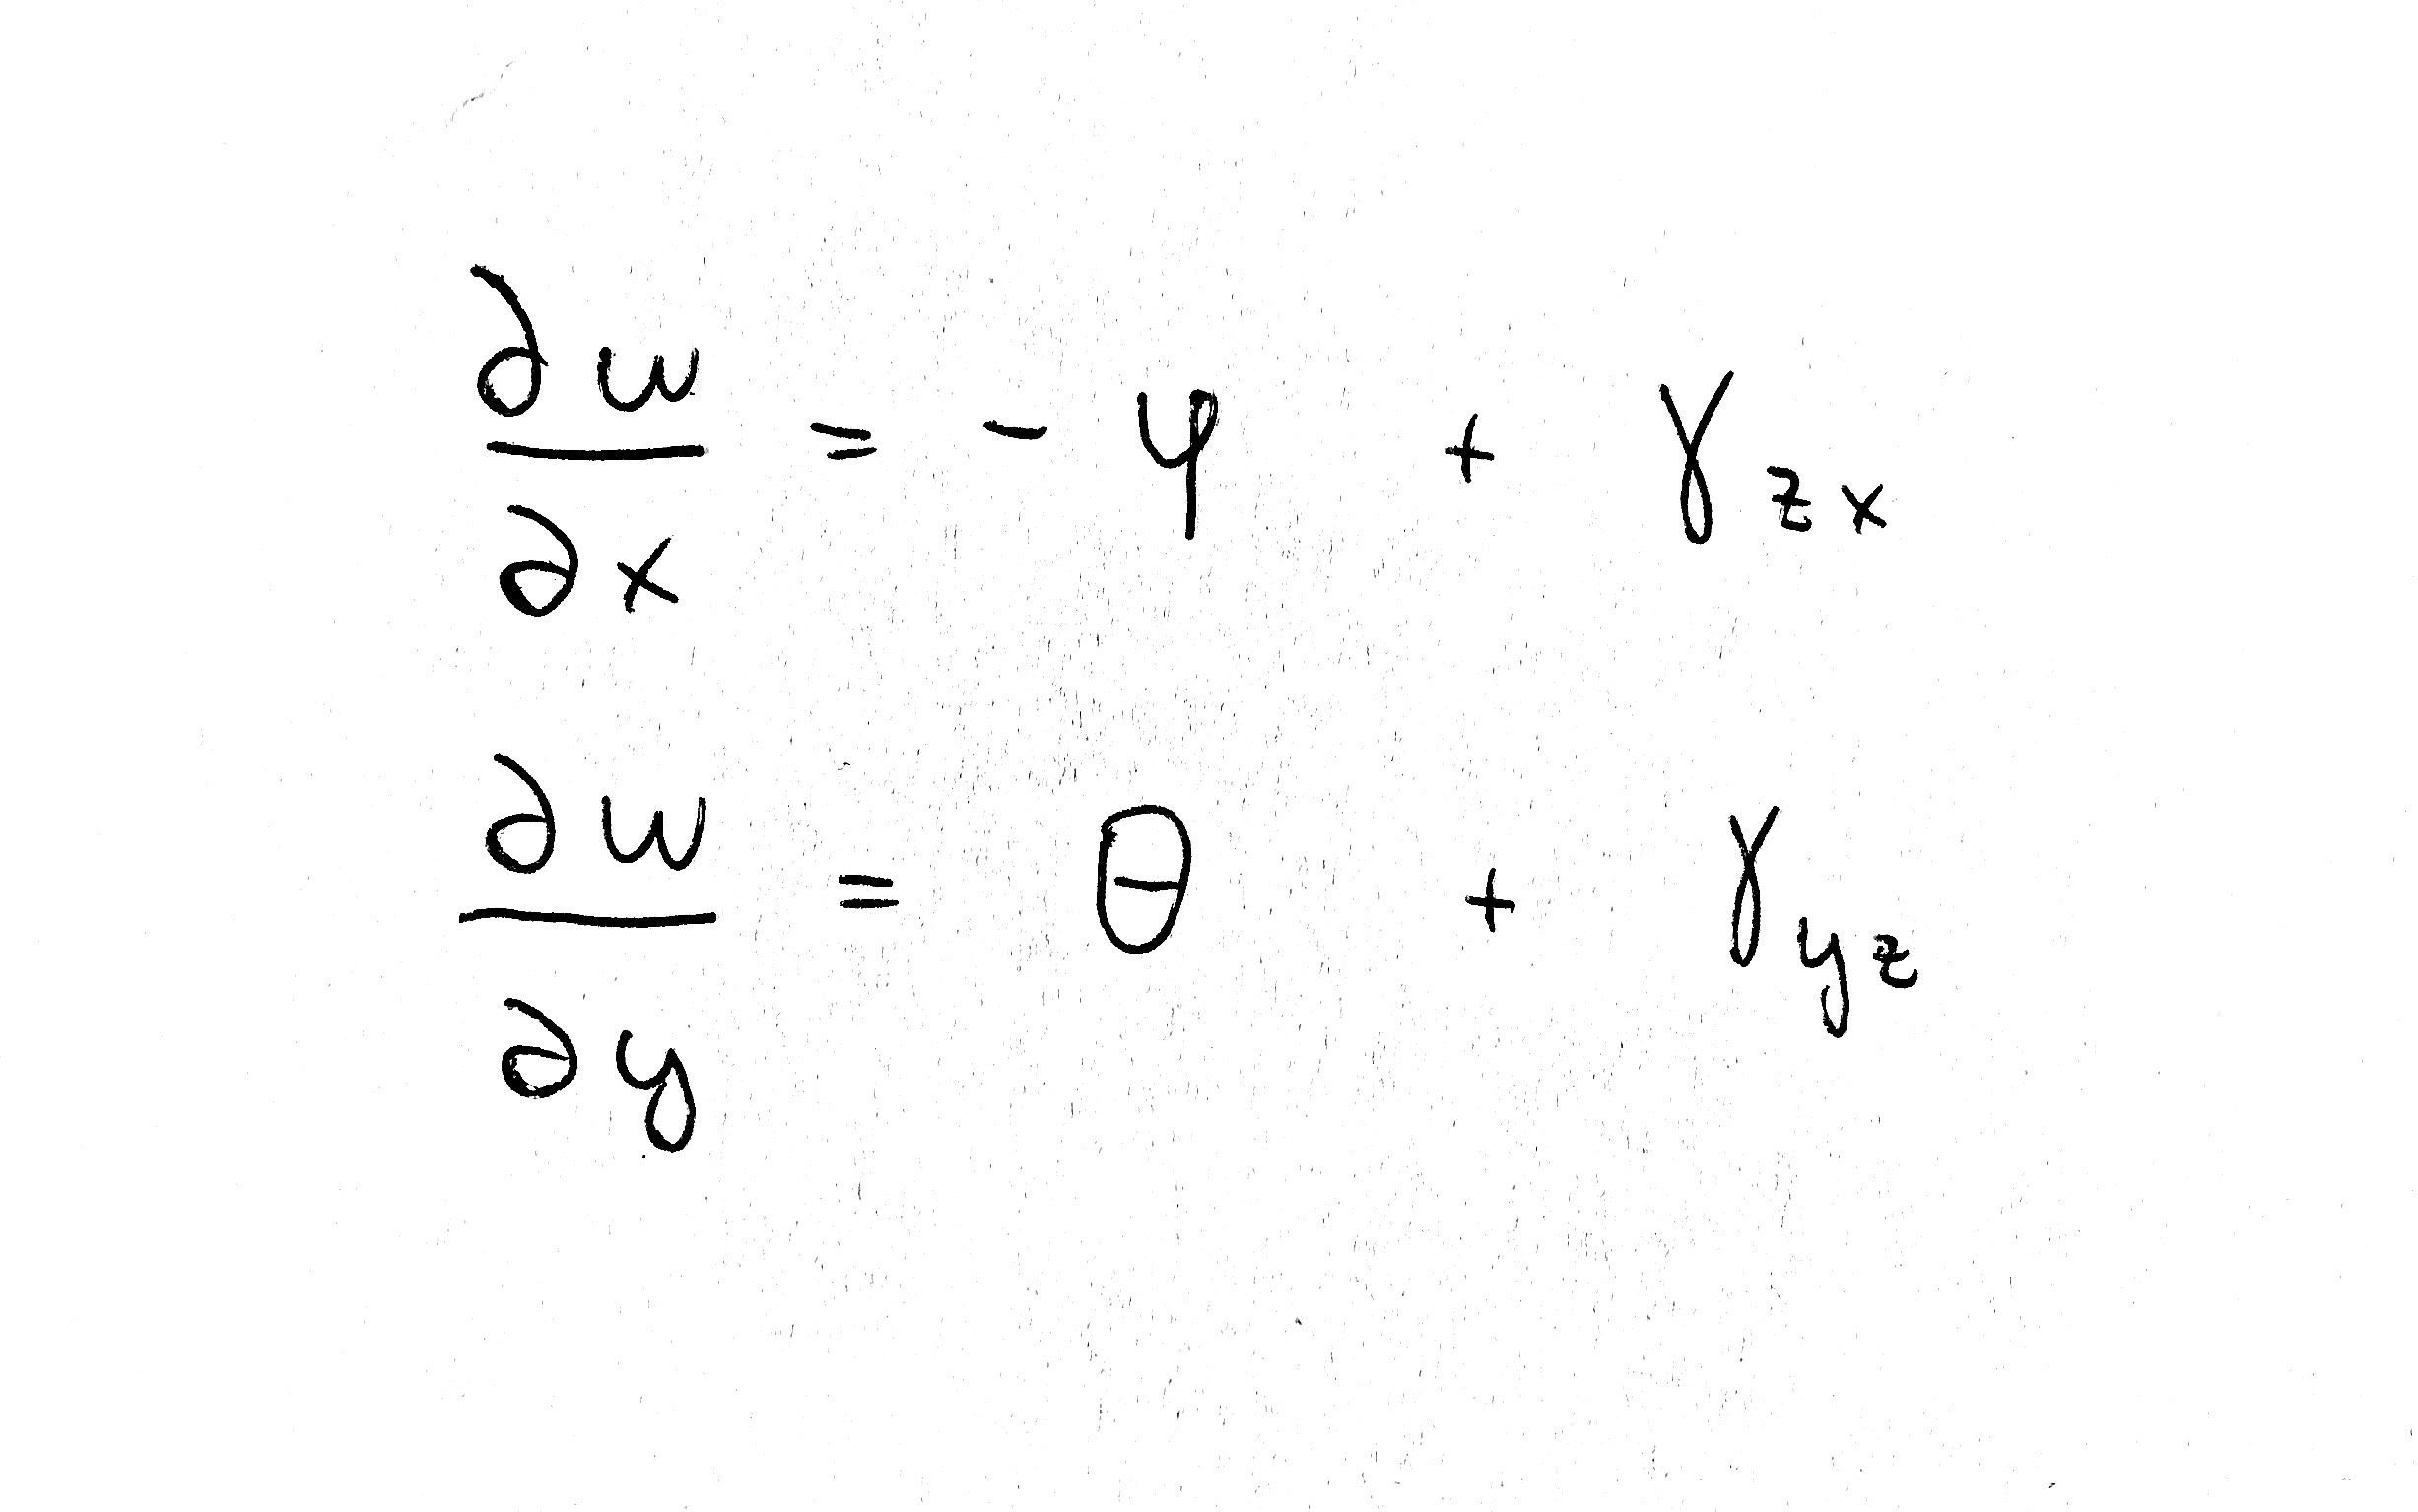 ∂w/∂x = - φ + γ_zx
∂w/∂y = θ + γ_yz